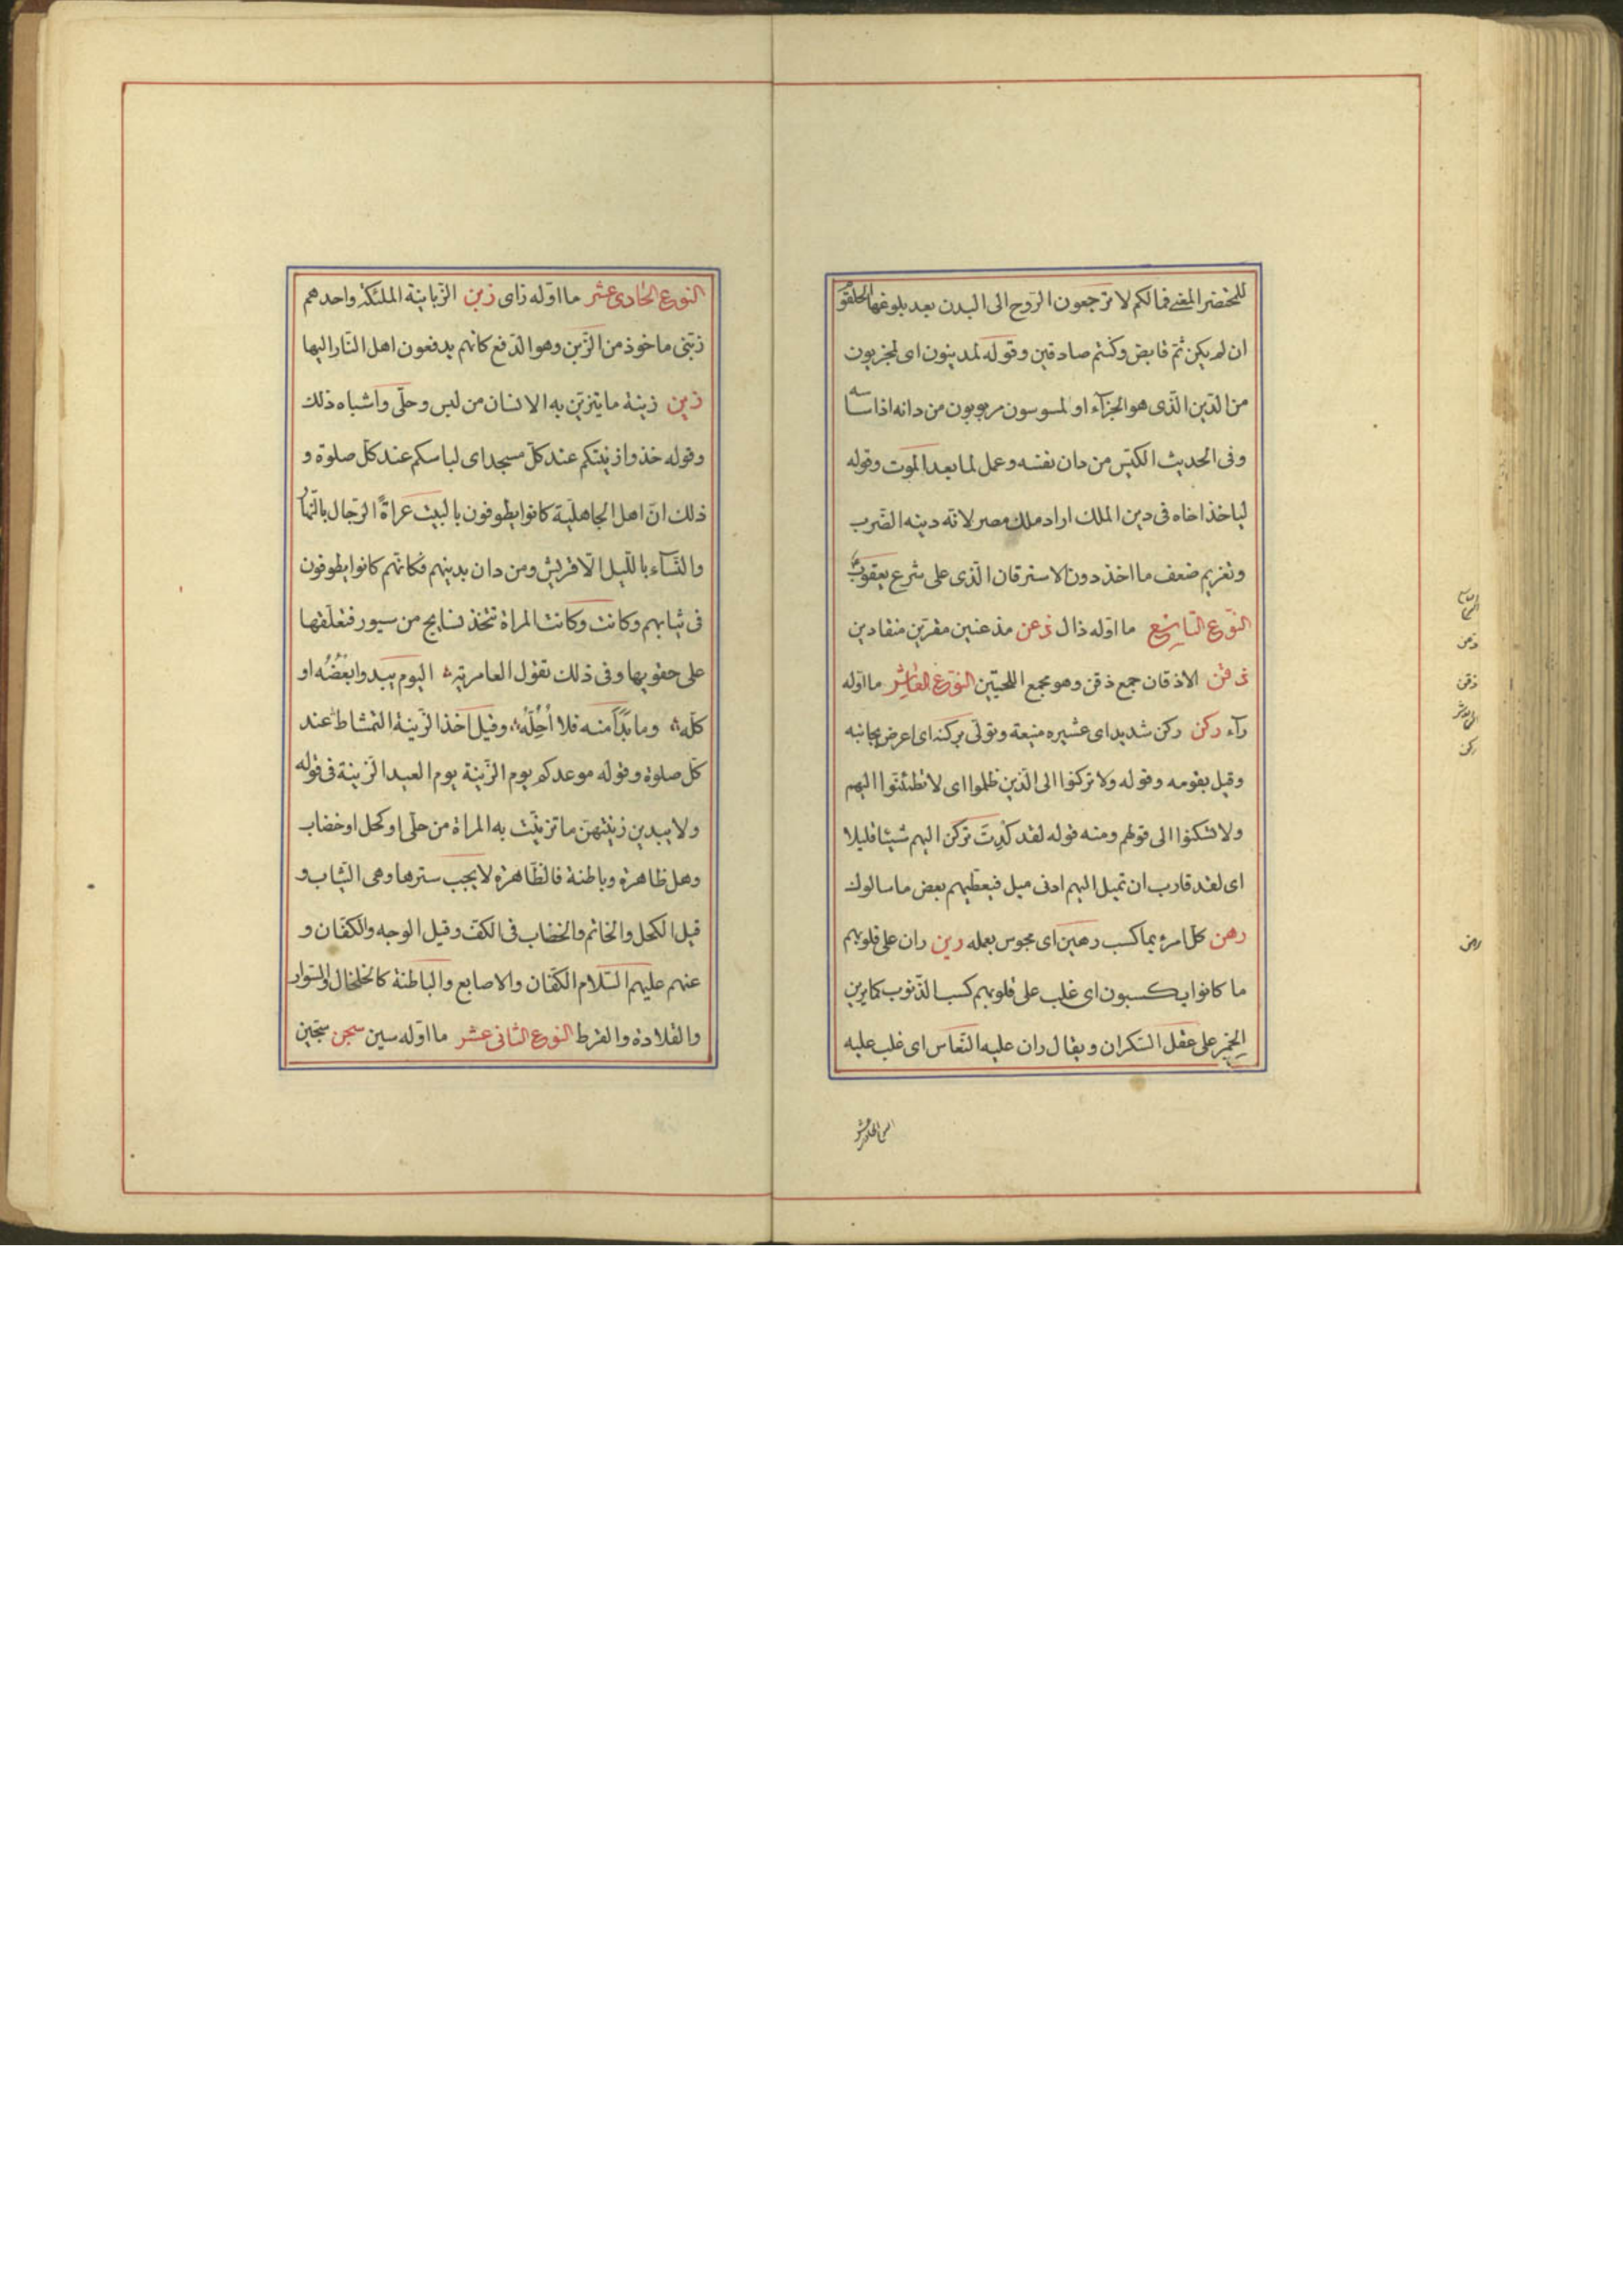 للمحتضر المعنى فما لكم لا ترجعون الروح الى البدن بعد بلوغها الحلقوم
ان لم يكن ثم قابض وكنتم صادقين وقوله لمدينون اى لمجزيون
من الدين الذى هو الجزآء او لمسوسون مربوبون من دانه اذا ساسه
وفى الحديث الكيّس من دان نفسه وعمل لما بعد الموت وقوله
لياخذ اخاه فى دين الملك اراد ملك مصر لانه دينه الضرب
وتغريم ضعف ما اخذ دون الاسترقان الذى على شرع يعقوب
النوع التاسع ما اوله ذال ذعن مذعنين مقرين منقادين
ذقن الاذقان جمع ذقن وهو مجمع اللحيتين النوع العاشر ما اوله
رآء ركن ركن شديد اى عشيره منيعة وتولى بركنه اى اعرض بجانبه
وقيل بقومه وقوله ولا تركنوا الى الذين ظلموا اى لا تطمئنوا اليهم
ولا تسكنوا الى قولهم ومنه قوله لقد كِدتَ تركن اليهم شيئا قليلا
اى لقد قارب ان تميل اليهم ادنى ميل فيعطيهم بعض ما سالوك
رهن كل امرء بما كسب رهين اى محبوس بعمله رين ران على قلوبهم
ما كانوا يكسبون اى غلب على قلوبهم كسب الذنوب كما يرين
الخمر على عقل السكران ويقال ران عليه النعاس اى غلب عليه
ذعن
ذقن
ركن
رهن
النوع الحادى عشر ما اوله زاى زبن الزبانية الملئكة واحدهم
زبنى ماخوذ من الزبن وهو الدفع كانهم يدفعون اهل النار اليها
زين زينة ما يتزين به الانسان من لبس وحلّى واشباه ذلك
وقوله خذوا زينتكم عند كل مسجد اى لباسكم عند كل صلوة و
ذلك ان اهل الجاهلية كانوا يطوفون بالبيت عراةً الرجال بالنهار
والنسآء بالليل الا قريش ومن دان بدينهم فكانهم كانوا يطوفون
فى ثيابهم وكانت وكانت المراة تتخذ نسايج من سيور فتعلقها
على حقويها وفى ذلك تقول العامرية اليوم يبدوا بعضُه او
كله وما بدا منه فلا اُحِلّه وقيل اخذ الزينة التمشاط عند
كل صلوة وقوله موعدكم يوم الزينة يوم العيد الزينة فى قوله
ولا يبدين زينتهن ما تزينت به المراة من حلى او كحل او خضاب
وهل ظاهرة وباطنة فالظاهرة لا يجب سترها وهى الثياب و
قيل الكحل والخاتم والخضاب فى الكف وقيل الوجه والكفان و
عنهم عليهم السلام الكفان والاصابع والباطنة كالخلخال والسوار
والقلادة والقرط النوع الثانى عشر ما اوله سين سجن سجين